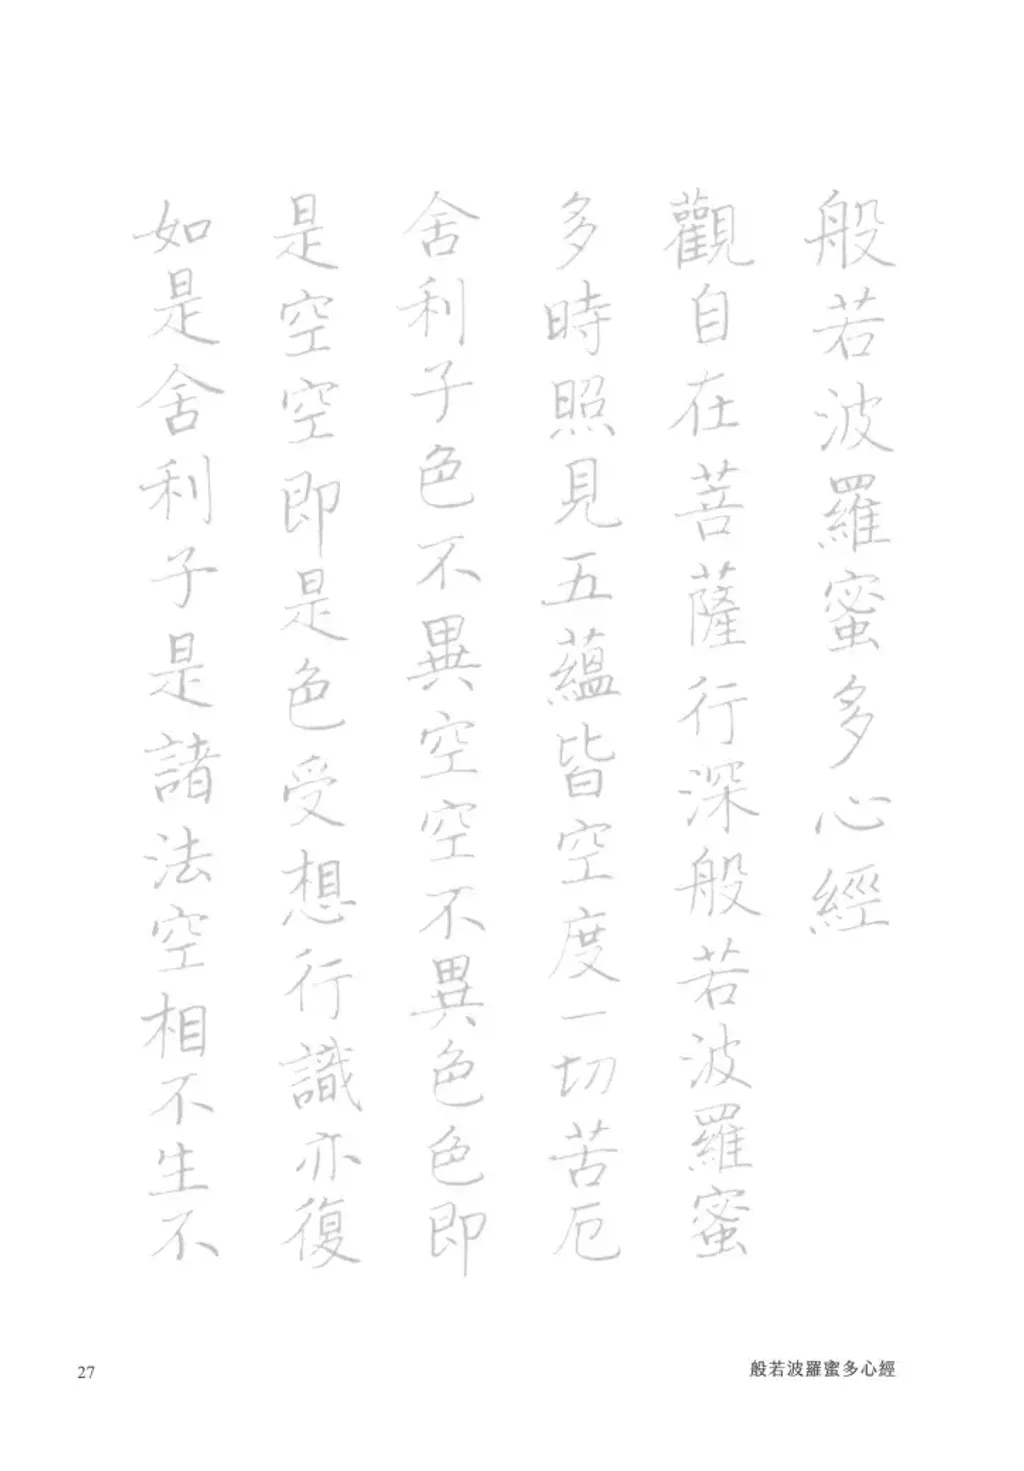 般若波羅蜜多心經
觀自在菩薩行深般若波羅蜜
多時照見五蘊皆空度一切苦厄
舍利子色不異空空不異色色即
是空空即是色受想行識亦復
如是舍利子是諸法空相不生不
27
般若波羅蜜多心經